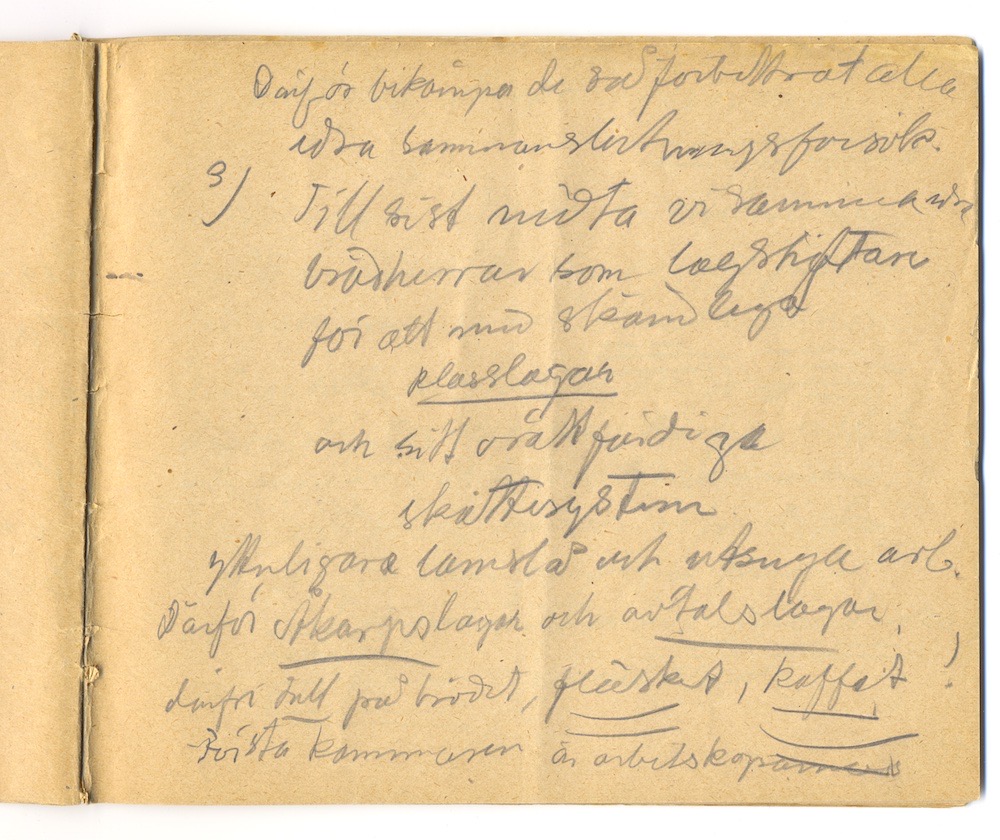 Därför bekämpa de så förbittrat alla
våra sammanslutningsförsök.
3) Till sist möta vi samma våra
brödherrar som lagstiftare
för att med skändliga
klasslagar
och sitt orättfärdiga
skattesystem
ytterligare lamslå och utsuga arb.
Därför Åkarpslagar och avtalslagar,
därför tull på brödet, fläsket, kaffet!
Första kammaren är arbetsköparnes